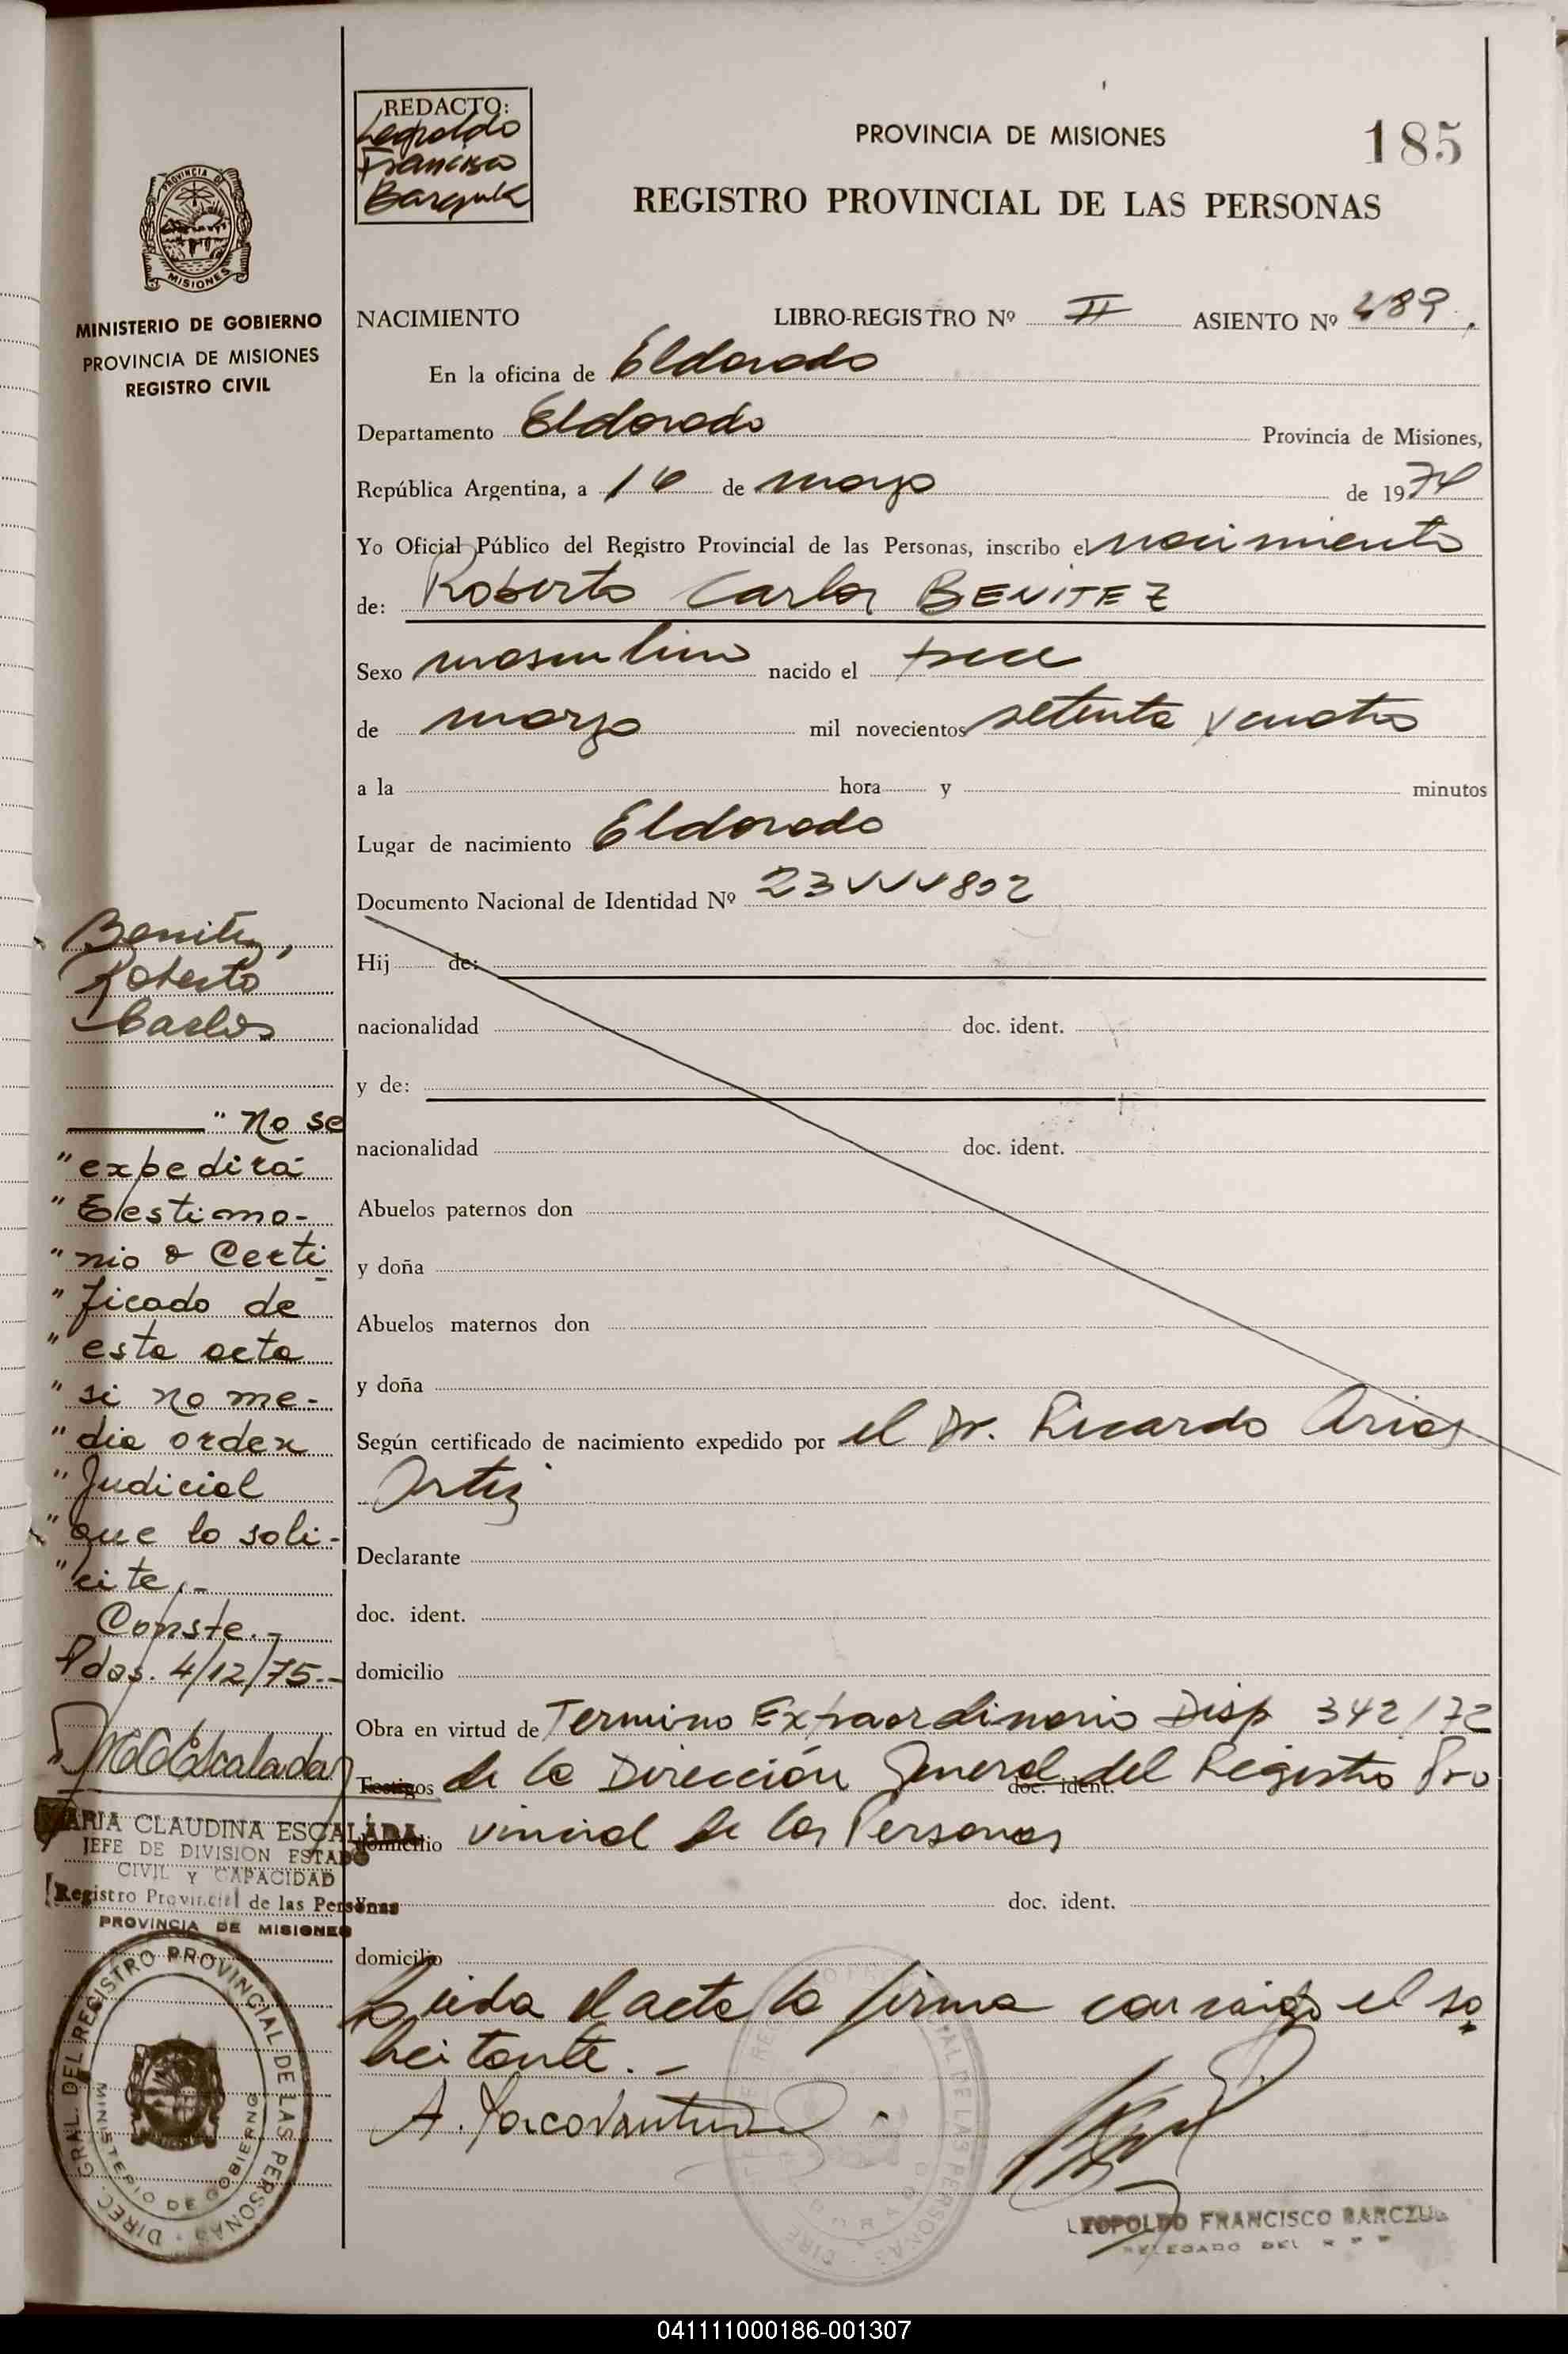 REDACTO:
Leopoldo
Francisco
PROVINCIA DE MISIONES
185
REGISTRO PROVINCIAL DE LAS PERSONAS
PROVINCIA DE
MISIONES
MINISTERIO DE GOBIERNO
PROVINCIA DE MISIONES
REGISTRO CIVIL
NACIMIENTO LIBRO-REGISTRO Nº II ASIENTO Nº 489.
En la oficina de Eldorado
Departamento Eldorado Provincia de Misiones,
República Argentina, a 16 de mayo de 1974
Yo Oficial Público del Registro Provincial de las Personas, inscribo el nacimiento
de: Roberto Carlos BENITEZ
Sexo masculino nacido el trece
de marzo mil novecientos setenta y cuatro
a la hora y minutos
Lugar de nacimiento Eldorado
Documento Nacional de Identidad Nº
Hij de:
nacionalidad doc. ident.
y de:
nacionalidad doc. ident.
Abuelos paternos don
y doña
Abuelos maternos don
y doña
Según certificado de nacimiento expedido por el Dr. Ricardo Arias
Ortiz
Declarante
doc. ident.
domicilio
Obra en virtud de Termino Extraordinario Disp 342/72
Testigos de la Dirección General del Registro Pro
doc. ident.
domicilio vincial de las Personas
y doc. ident.
domicilio
Leida el acta la firma conmigo el so
licitante.-
LEOPOLDO FRANCISCO BARCZUK
DELEGADO DEL R P P
Benitez,
Roberto
Carlos
" No se
" expedirá
" Testimo-
" nio o Certi
" ficado de
" esta acta
" si no me-
" dia orden
" Judicial
" que lo soli-
" cite.-
Conste.-
Pdas. 4/12/75.-
MCEscalada
MARIA CLAUDINA ESCALADA
JEFE DE DIVISION ESTADO
CIVIL Y CAPACIDAD
Registro Provincial de las Personas
PROVINCIA DE MISIONES
DIREC. GRAL. DEL REGISTRO PROVINCIAL DE LAS PERSONAS
MINISTERIO DE GOBIERNO
041111000186-001307